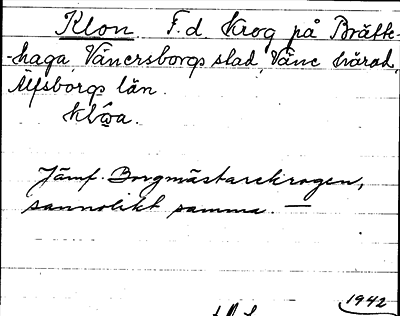 Klon F.d. Krog på Brätte-
-haga, Vänersborgs stad, Väne härad,
Älfsborgs län.
Jämf. Borgmästarekrogen,
sannolikt samma. —
1942